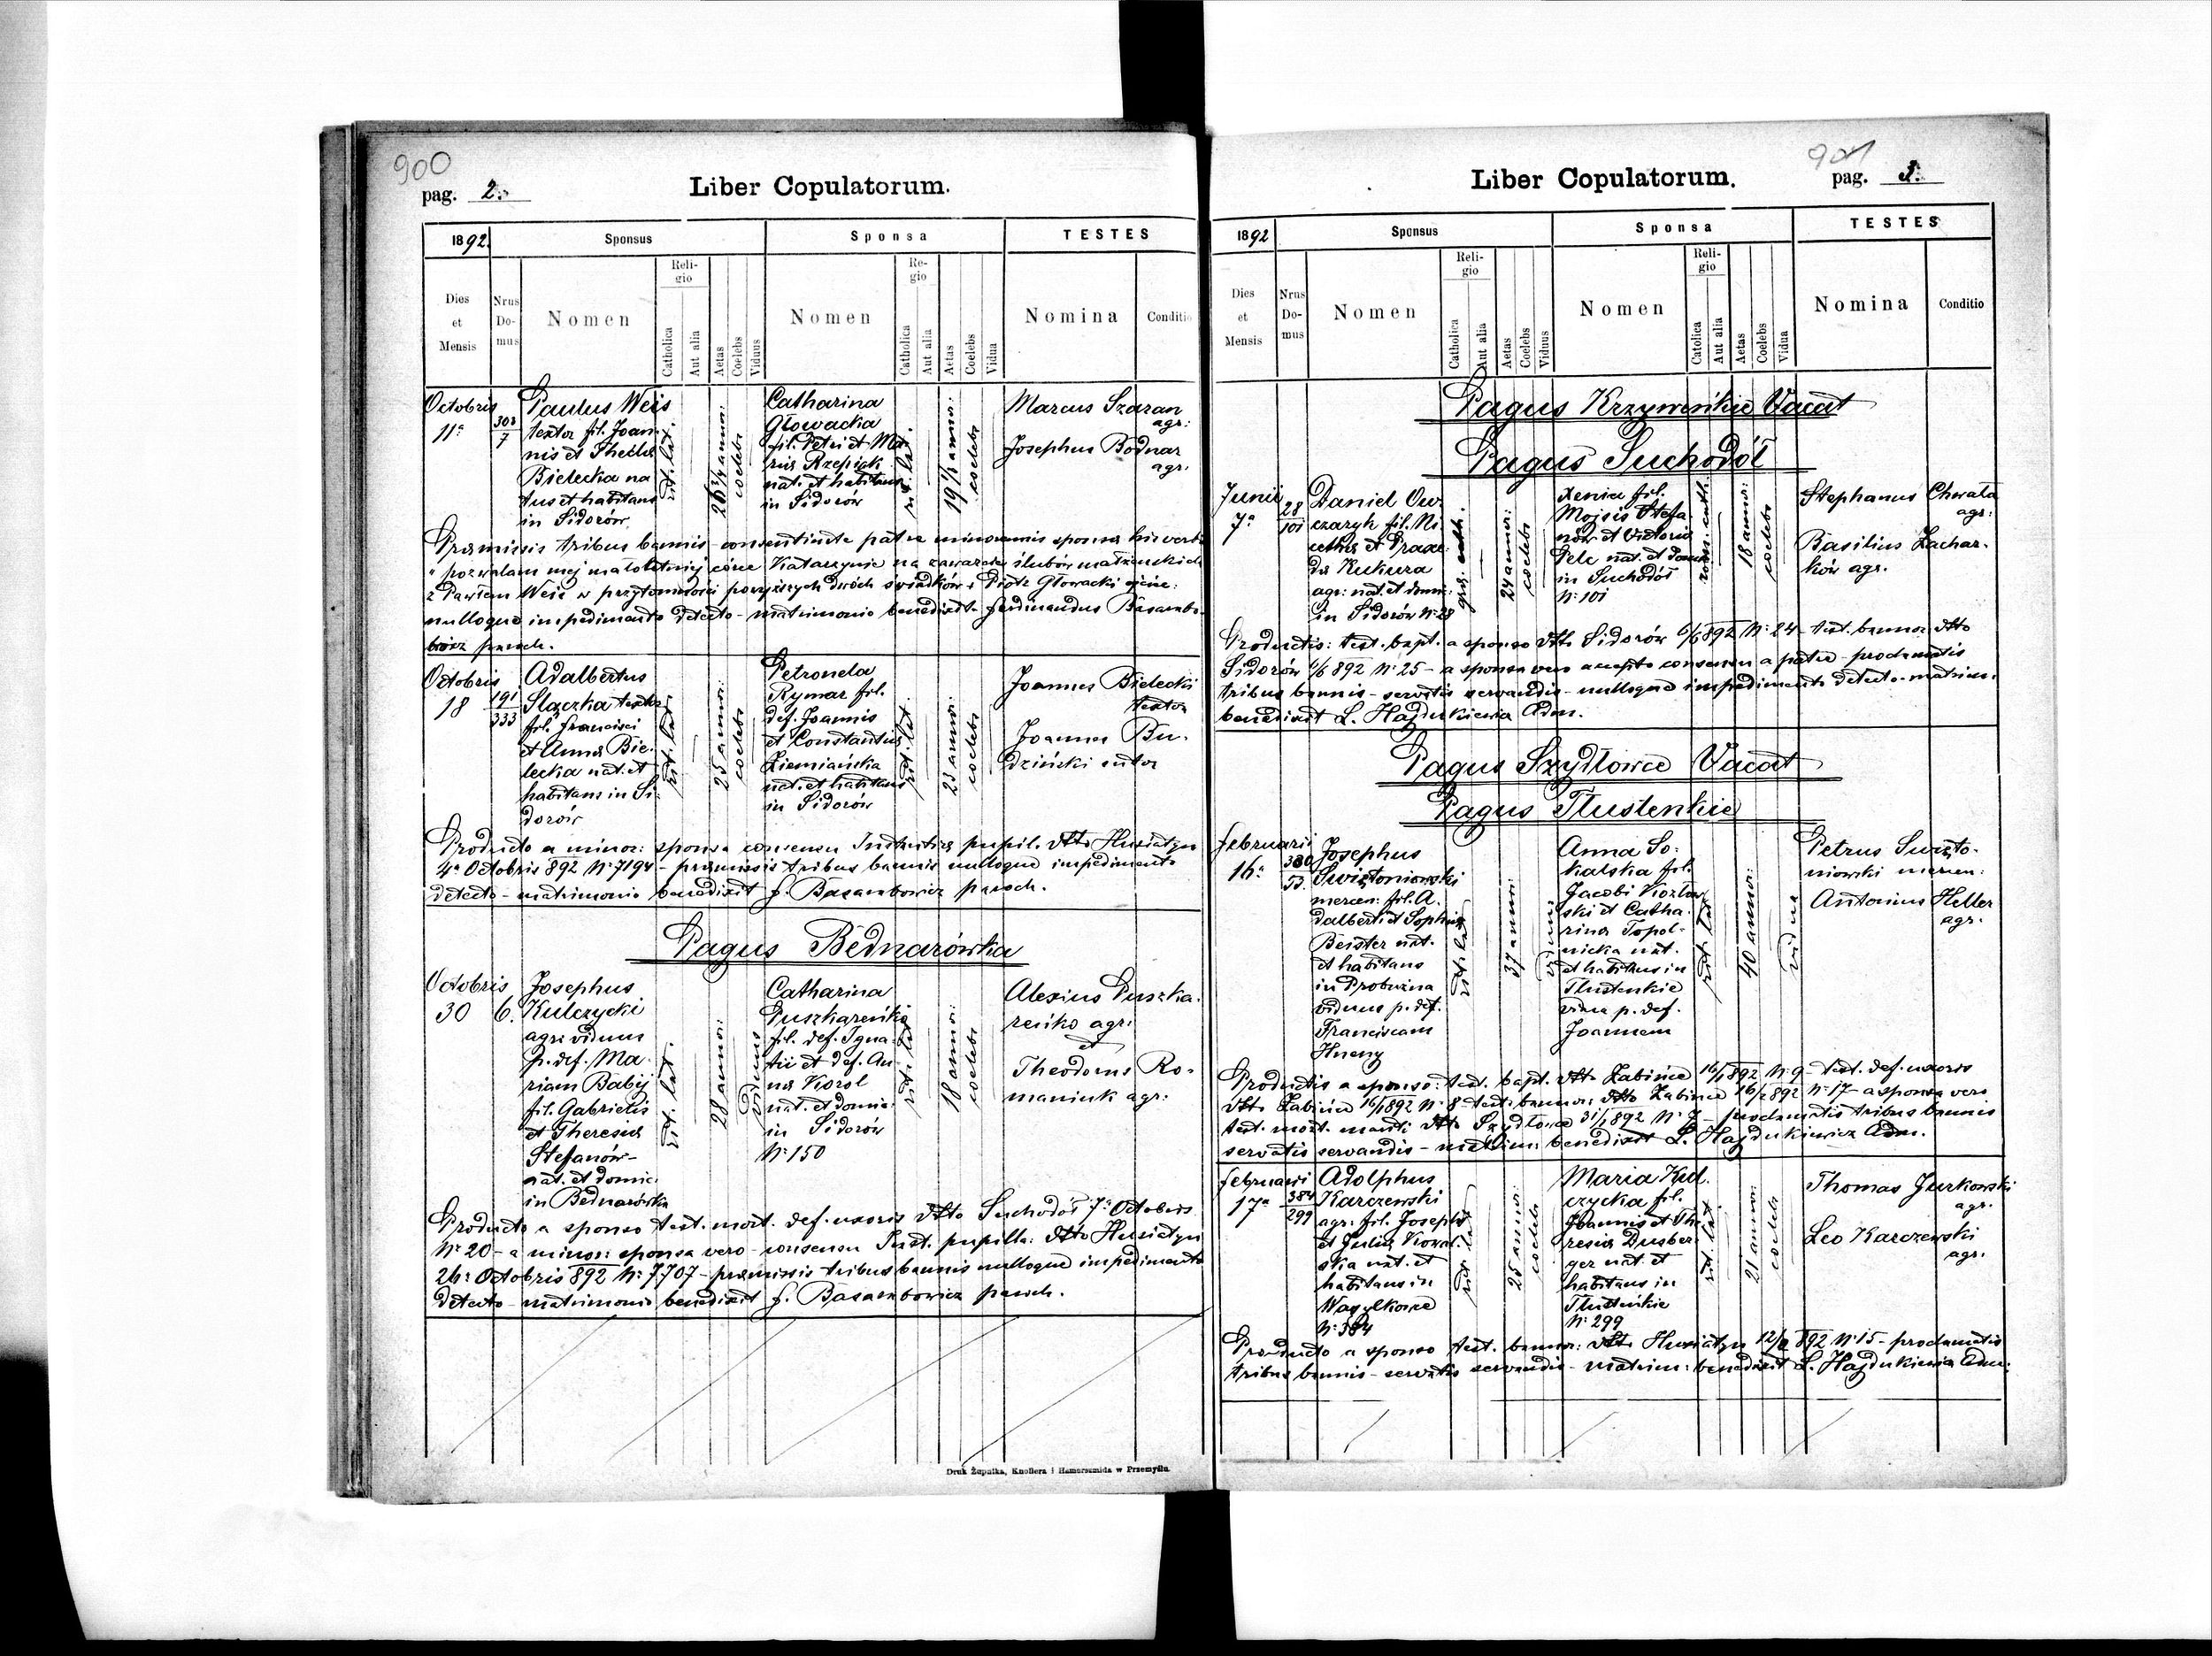 900
pag. 2.
Liber Copulatorum.
1892.
Sponsus
Sponsa
TESTES
Dies et Mensis
Nrus Do- mus
Nomen
Reli- gio
Catholica
Aut alia
Aetas
Coelebs
Viduus
Nomen
Re- gio
Catholica
Aut alia
Aetas
Coelebs
Vidua
Nomina
Conditio
Octobris
11a
308
7
Paulus Weis
textor fil. Joan-
nis et Theclæ
Bielecka na
tus et habitans
in Sidorów
rit. lat.
26 3/4 annor:
coelebs
Catharina
Głowacka
fil. Petri et Ma-
riæ Rzepiak
nat. et habitans
in Sidorów
rit. lat.
19 1/2 annor:
coelebs
Marcus Szaran
agr:
Josephus Bodnar
agr.
Præmissis tribus bannis - consentiente patre minorennis sponsæ hisverbis
" pozwalam mej małoletniej córce Katarzynie na zawarcie ślubów małżeńskich
z Pawłem Weis w przytomności powyższych dwóch świadków: Piotr Głowacki ojciec:
nulloque impedimento detecto - matrimonio benedixit Ferdinandus Basarabo-
wicz paroch.
Octobris
18
191
333
Adalbertus
Slączka textor
fil. Francisci
et Annæ Bie-
lecka nat. et
habitans in Si-
dorów
rit. lat.
25 annor:
coelebs
Petronela
Rymar fil.
def. Joannis
et Constantiæ
Ziemiańska
nat. et habitans
in Sidorów
rit. lat.
23 annor:
coelebs
Joannes Bielecki
textor
Joannes Bu-
dziński sutor
Producto a minor: sponsa consensu Institutiæ pupil. dtto Husiatyn
4a Octobris 892 Nr 7194 - præmissis tribus bannis nulloque impedimento
detecto - matrimonio benedixit f. Basarabowicz paroch.
Pagus Bednarówka
Octobris
30
6.
Josephus
Kulczycki
agr: viduus
p. def. Ma-
riam Babij
fil. Gabrielis
et Theresiæ
Stefanów-
nat. et domic:
in Bednarówka
rit. lat.
28 annor:
viduus
Catharina
Puszkareńko
fil. def. Igna-
tii et def. An-
næ Korol
nat. et domic:
in Sidorów
Nr 150
rit. lat.
18 annor:
coelebs
Alexius Puszka-
reńko agr:
et
Theodorus Ro-
maniuk agr:
Producto a sponso test. mort. def. uxoris dtto Suchodół 7a Octobris
Nr 20 - a minor: sponsa vero - consensu Inst. pupilla: dtto Husiatyn
26a Octobris 892 Nr 7707 - præmissis tribus bannis nulloque impedimento
detecto - matrimonio benedixit f. Basarabowicz paroch.
Druk Żupnika, Knollera i Hamerszmida w Przemyślu.
901
pag. 3.
Liber Copulatorum.
1892
Sponsus
Sponsa
TESTES
Dies et Mensis
Nrus Do- mus
Nomen
Reli- gio
Catholica
Aut alia
Aetas
Coelebs
Viduus
Nomen
Reli- gio
Catolica
Aut alia
Aetas
Coelebs
Vidua
Nomina
Conditio
Pagus Krzyweńkie Vacat
Pagus Suchodół
Junii
7a
28
101
Daniel Ow-
czaryk fil. Ni-
cethæ et Praxe-
dæ Kukura
agr: nat. et domic:
in Sidorów Nr 28
gr. cath.
24 annor:
coelebs
Xenia fil.
Mojsis Stefa-
nów et Victoriæ
Pelc nat. et domic
in Suchodół
Nr 101
rom. cath.
18 annor:
coelebs
Stephanus Chwała
agr:
Basilius Zachar-
ków agr.
Productis: test. bapt. a sponso dtto Sidorów 6/6 892 Nr 24 - test. bannor: dtto
Sidorów 6/6 892 Nr 25 - a sponsa vero accepto consensu a patre - proclamatis
tribus bannis - servatis servandis - nulloque impedimento detecto - matrim:
benedixit L. Hajdukiewicz Adm.
Pagus Szydłowce Vacat
Pagus Tłusteńkie
Februarii
16a
380
53
Josephus
Swiętoniowski
mercen: fil. A-
dalberti et Sophiæ
Beister nat.
et habitans
in Probużna
viduus p. def.
Franciscam
Hneny
rit. lat.
37 annor:
viduus
Anna So-
kalska fil.
Jacobi Kozłow-
ski et Catha-
rinæ Topol-
nicka nat.
et habitans in
Tłusteńkie
vidua p. def.
Joannem
rit. lat.
40 annor:
vidua
Petrus Swięto-
niowski mercen:
Antonius Heller
agr.
Productis a sponso: test. bapt. dtto Zabińce 16/1 892 Nr 9 - test. def. uxoris
dtto Zabińce 16/1 892 Nr 8 - test: bannor: dtto Zabińce 16/2 892 Nr 17 - a sponsa vero
test. mort. mariti dtto Szydłowce 31/1 892 Nr 7 - proclamatis tribus bannis
servatis servandis - matrim: benedixit L. Hajdukiewicz Adm.
Februarii
17a
384
299
Adolphus
Karczewski
agr: fil. Josephi
et Juliæ Kowal-
ska nat. et
habitans in
Wasylkowce
Nr 384
rit. lat.
25 annor:
coelebs
Maria Kul-
czycka fil.
Joannis et The-
resiæ Dusber-
ger nat. et
habitans in
Tłusteńkie
Nr 299
rit. lat.
21 annor:
coelebs
Thomas Jurkowski
agr.
Leo Karczewski
agr.
Producto a sponso test. bannor: dtto Husiatyn 12/2 892 Nr 15 - proclamatis
tribus bannis - servatis servandis - matrim: benedixit L. Hajdukiewicz Adm: